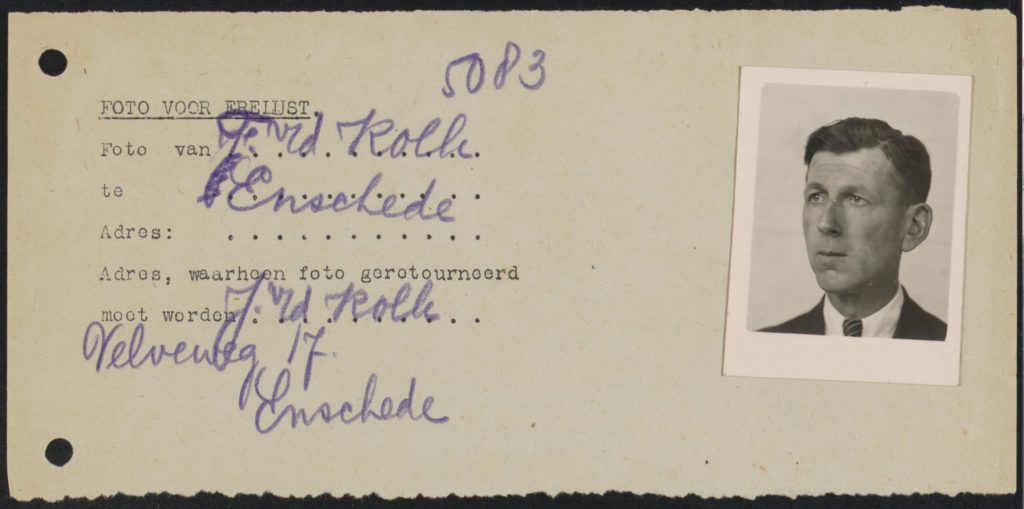 5083
FOTO VOOR ERELIJST.
Foto van J. vd Kolk
te Enschede
Adres: . . . . . . . . . . . .
Adres, waarheen foto geretourneerd
moet worden J. vd Kolk
Velveweg 17.
Enschede